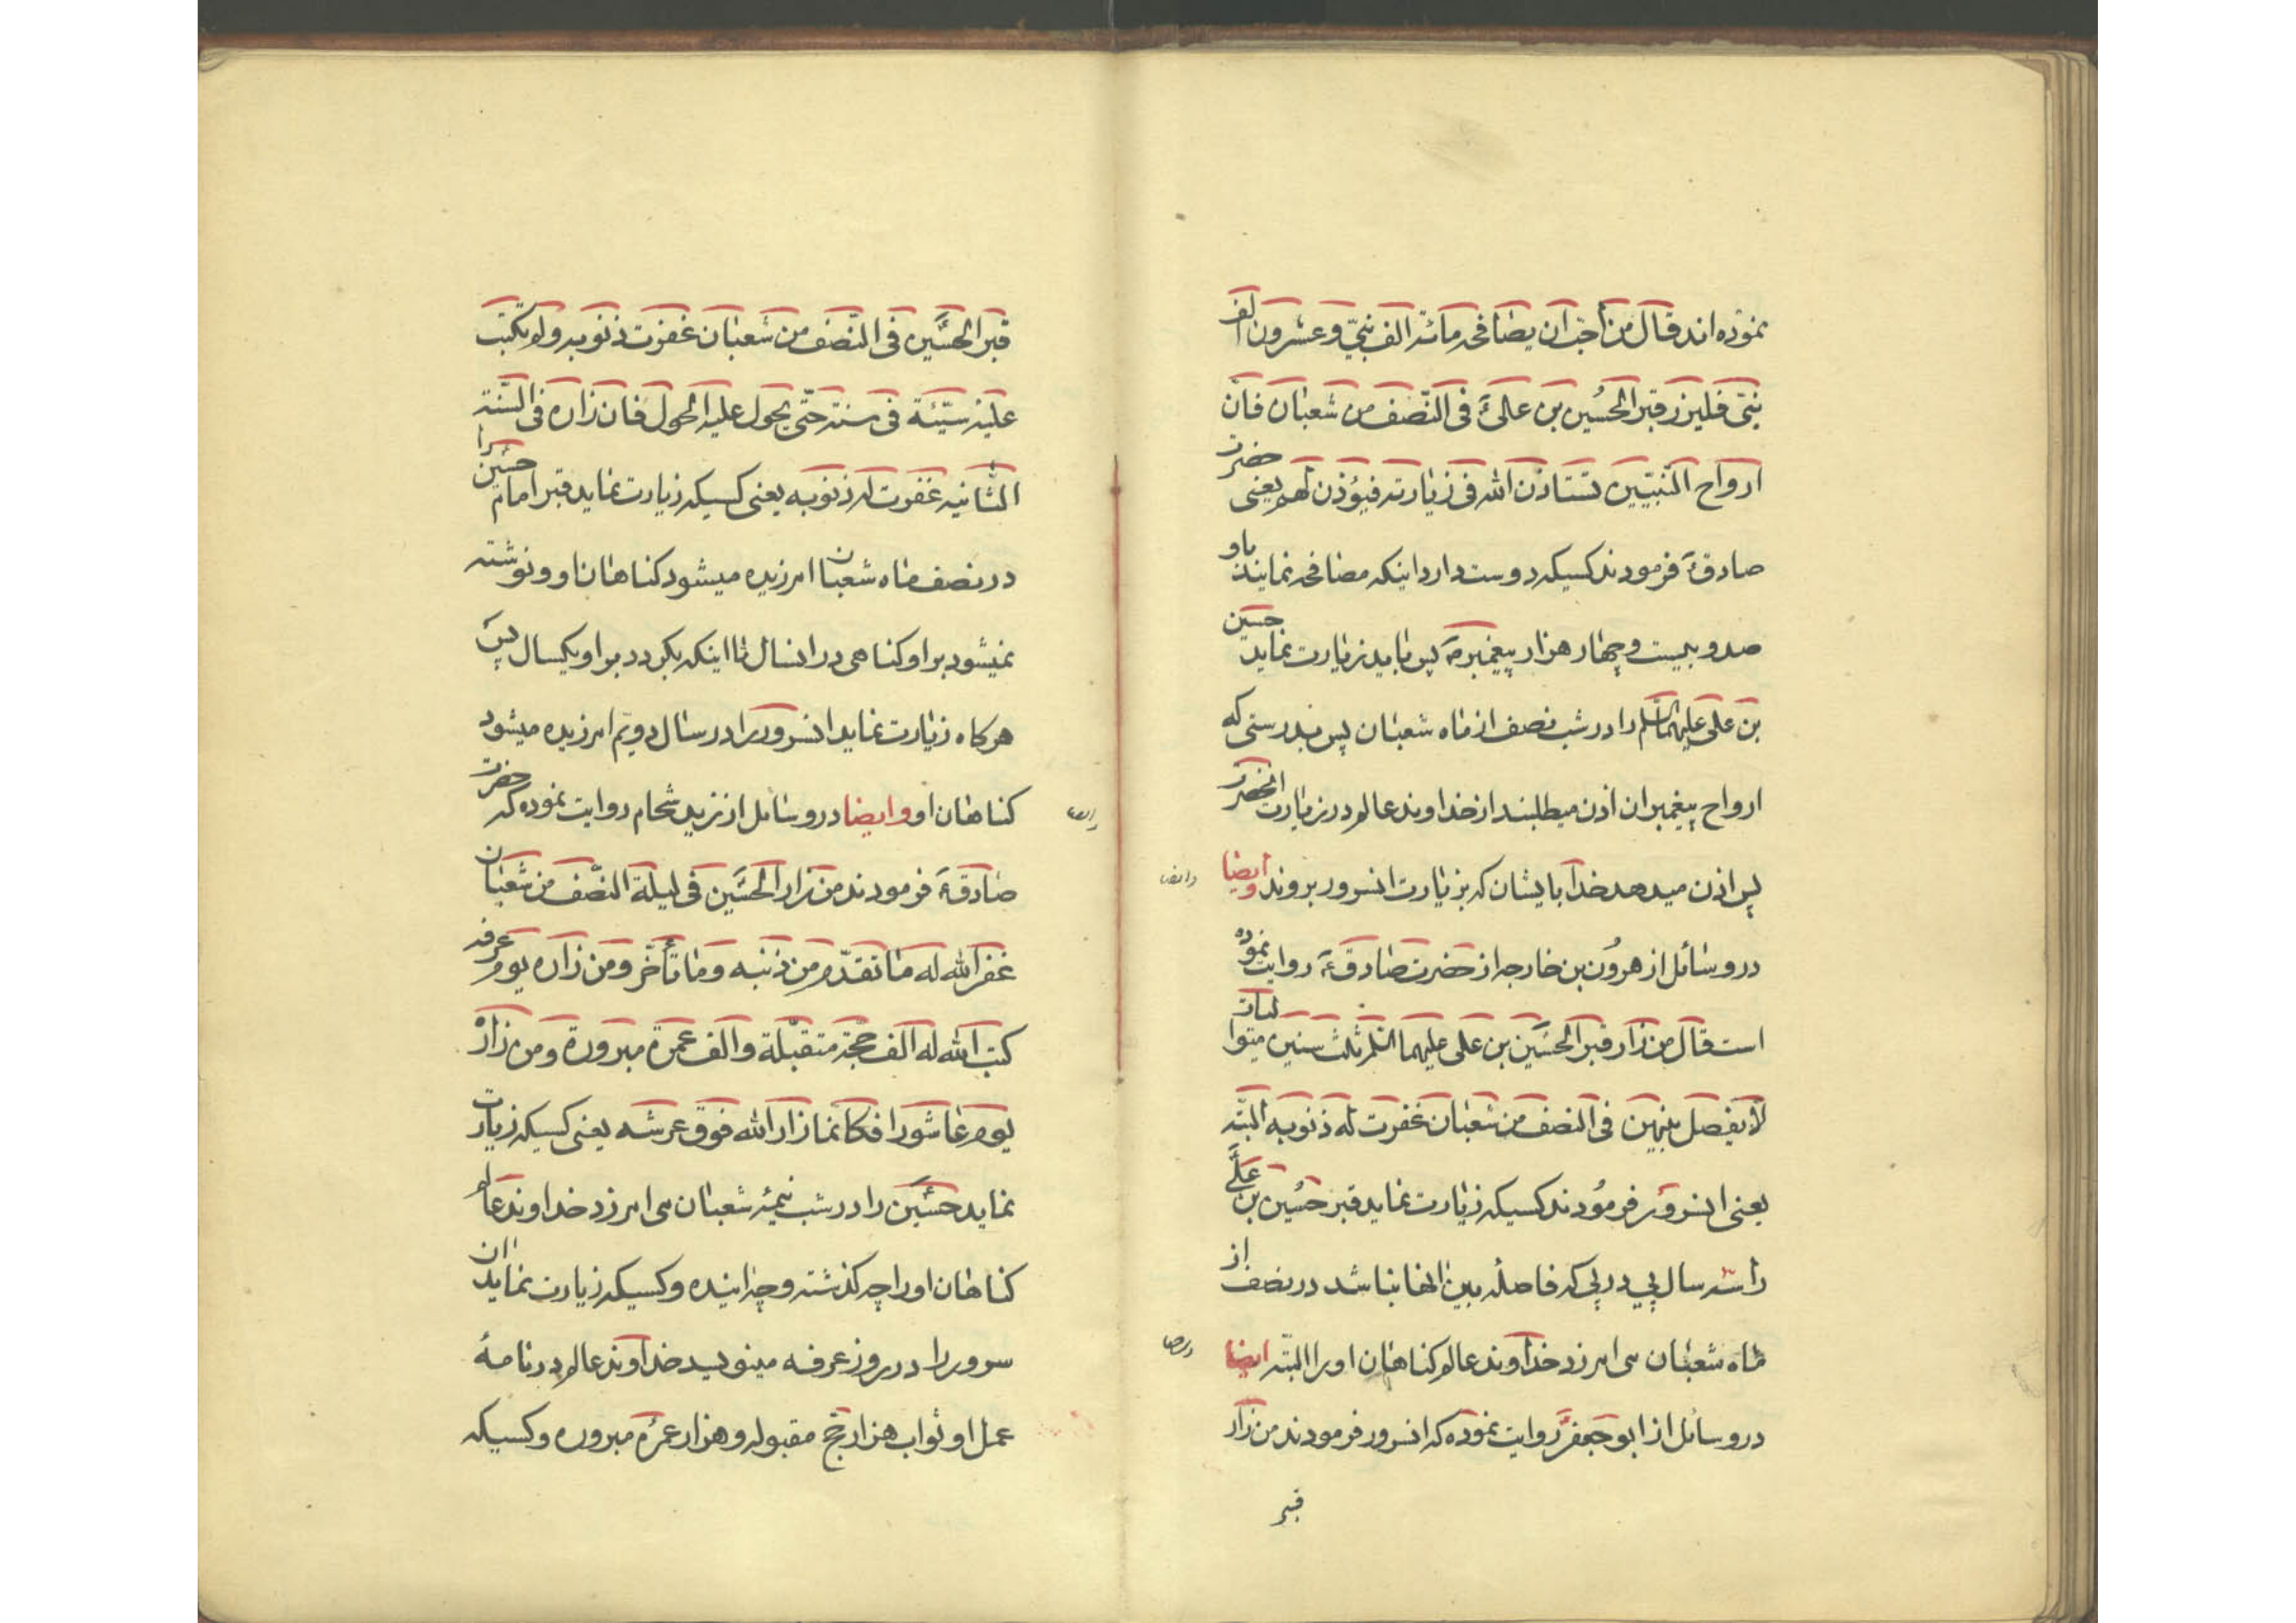 نموده اند قال من احب ان يصافحه مائة الف نبي و عشرون الف
نبي فليزر قبر الحسين بن علي ع في النصف من شعبان فان
ارواح النبيين تستاذن الله في زيارته فيؤذن لهم يعنى حضرت
صادق ع فرمودند كسيكه دوست دارد اينكه مصافحه نمايند باو
صد و بيست و چهار هزار پيغمبر ص پس بايد زيارت نمايد حسين
بن على عليهما السلم را در شب نصف از ماه شعبان پس بدرستى كه
ارواح پيغمبران اذن ميطلبند از خداوند عالم در زيارت انحضرت
پس اذن ميدهد خدا بايشان كه بزيارت انسرور بروند و ايضا
در وسائل از هرون بن خارجه از حضرت صادق ع روايت نموده
است قال من زار قبر الحسين بن على عليهما السلم ثلث سنين متواليات
لا يفصل بينهن فى النصف من شعبان غفرت له ذنوبه البته
يعنى انسرور فرمودند كسيكه زيارت نمايد قبر حسين بن على
را سه سال پي در پي كه فاصله بين انها نباشد در نصف از
ماه شعبان مى امرزد خداوند عالم كناهان او را البته ايضا
در وسائل از ابو جعفر ع روايت نموده كه انسرور فرمودند من زار
قبر
قبر الحسين فى النصف من شعبان غفرت ذنوبه و لم تكتب
عليه سيئة فى سنته حتى يحول عليه الحول فان زاره فى السنة
الثانيه غفرت له ذنوبه يعنى كسيكه زيارت نمايد قبر امام حسين را
در نصف ماه شعبان امرزيده ميشود كناهان او و نوشته
نميشود بر او كناهى در انسال تا اينكه بكردد بر او يكسال پس
هركاه زيارت نمايد انسرور را در سال دويم امرزيده ميشود
كناهان او و ايضا در وسائل از زيد شحام روايت نموده كه حضرت
صادق ع فرمودند من زار الحسين فى ليلة النصف من شعبان
غفر الله له ما تقدم من ذنبه و ما تأخر و من زاره يوم عرفه
كتب الله له الف حجة متقبلة و الف عمرة مبرورة و من زاره
يوم عاشورا فكانما زار الله فوق عرشه يعنى كسيكه زيارت
نمايد حسين را در شب نيمهٔ شعبان مى امرزد خداوند عالم
كناهان او را چه كذشته و چه اينده و كسيكه زيارت نمايد ان
سرور را در روز عرفه مينويسد خداوند عالم در نامهٔ
عمل او ثواب هزار حج مقبوله و هزار عمرهٔ مبروره و كسيكه